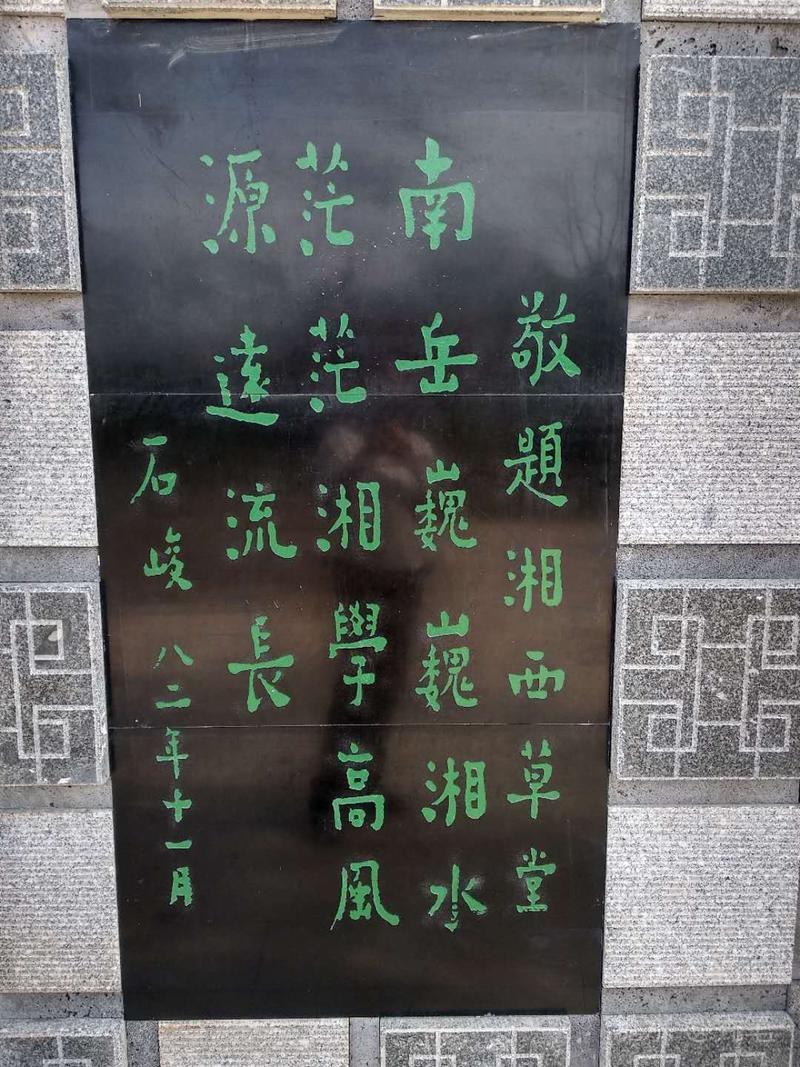 敬題湘西草堂
南岳巍巍湘水
茫茫湘學高風
源遠流長
石峻 八二年十一月